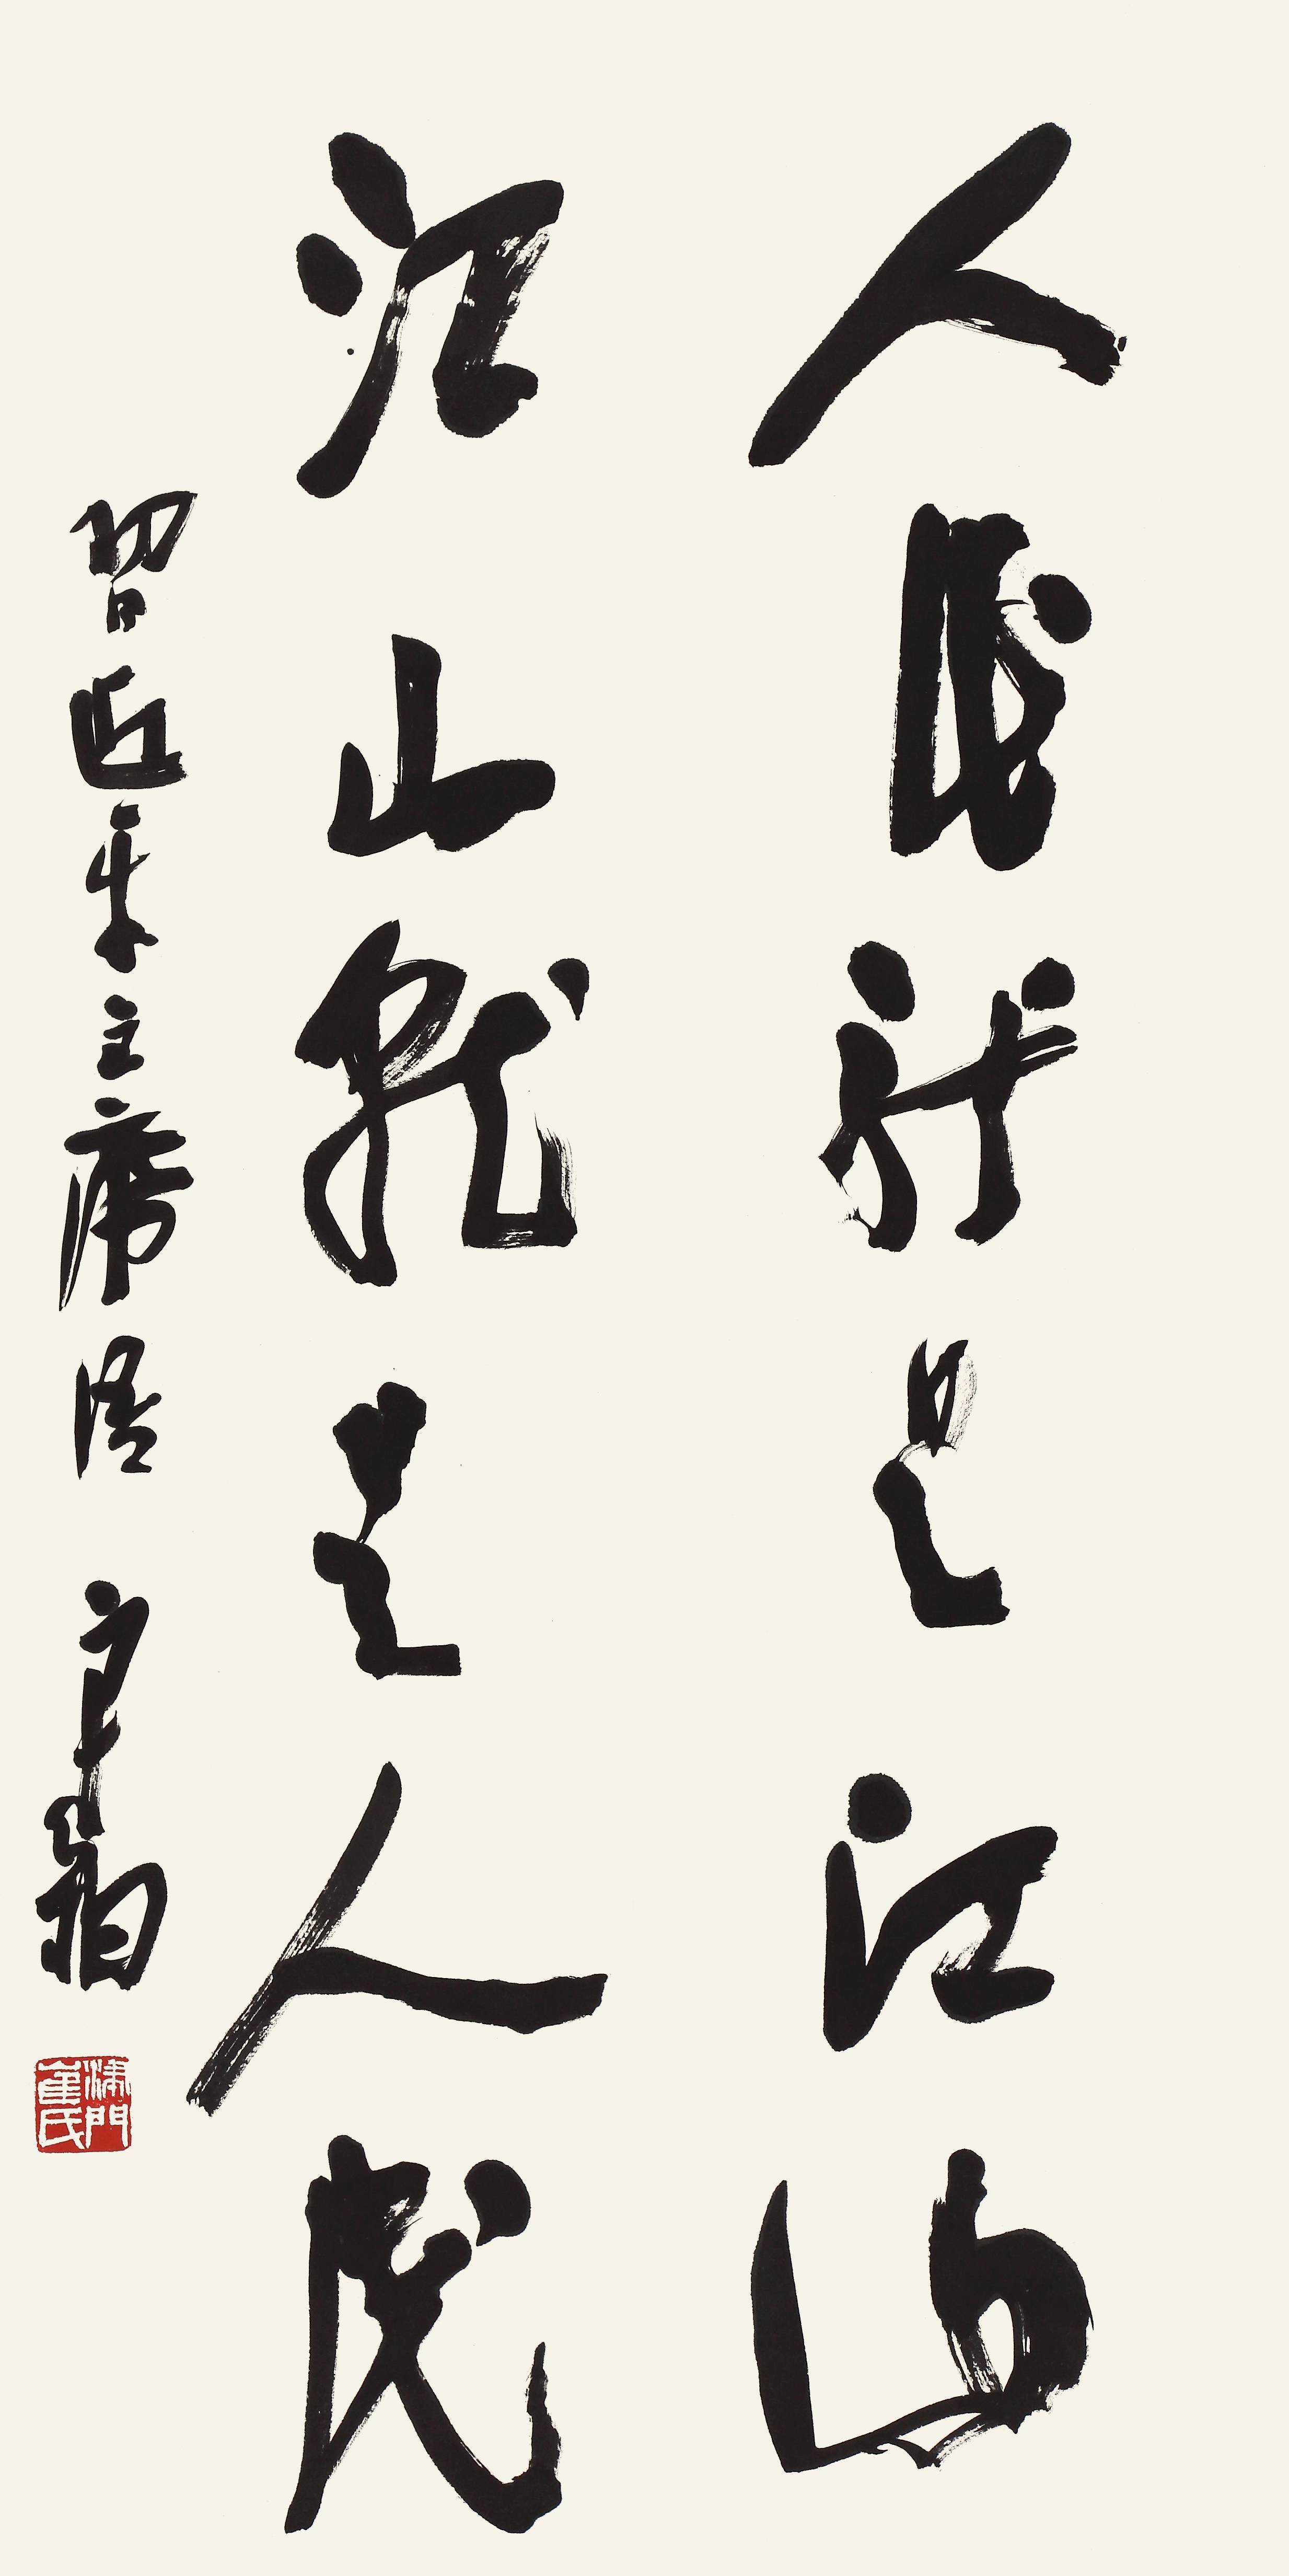 人民就是江山
江山就是人民
习近平主席语 良翁